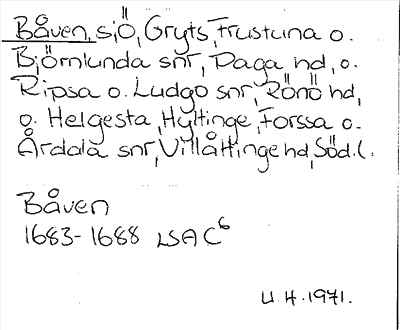 Båven, sjö, Gryts, Frustuna o.
Björnlunda snr, Daga hd, o.
Ripsa o. Ludgo snr, Rönö hd,
o. Helgesta, Hyltinge, Forssa o.
Årdala snr, Villåttinge hd, Söd.l.
Båven
1683-1688 LSA C6
U.H.1971.